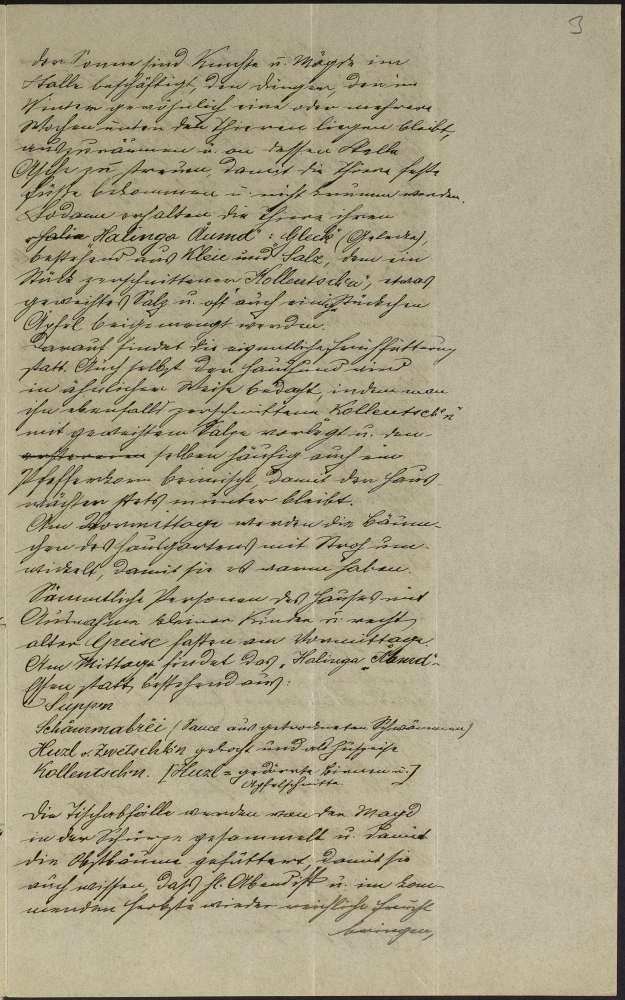 3
der Sonne sind Knechte u. Mägde im
Stalle beschäftigt, den Dünger, der im
Winter gewöhnlich eine oder mehrere
Wochen unter den Thieren liegen bleibt,
auszuräumen u. an dessen Stelle
Asche zu streuen, damit die Thiere feste
Füße bekommen u. nicht krumm werden.
Sodann erhalten die Thiere ihren
Halinga Aumd": Gleck" (Gelecke),
bestehend aus Kleie und Salz, dem ein
Stück zerschnittener Kollentschen", etwas
geweihtes Salz u. oft auch ein Stückchen
Äpfel beigemengt werden.
Darauf findet die eigentliche Fütterung
statt. Auch selbst der Haushund wird
in ähnlicher Weise bedacht, indem man
ihm ebenfalls zerschnittene Kollentsch'n"
mit geweihtem Salze vorlegt u. den-
selben häufig auch ein
Pfefferkorn beimischt, damit der Haus-
wächter stets munter bleibt.
Am Vormittage werden die Bäum-
chen des Hausgartens mit Stroh um-
wickelt, damit sie es warm haben.
Sämmtliche Personen des Hauses mit
Ausnahme kleiner Kinder u. recht
alter Greise fasten am Vormittage.
Am Mittage findet das „Halinga Aumd"-
Essen statt, bestehend aus:
Suppn
Schäumabrëi (Sauce aus getrockneten Schwämmen)
Huzl u. Zwetschk'n gekocht und als Süßspeise
Kollentschn. [Huzl = gedörrte Birnen u.
Apfelschnitte.]
Die Tischabfälle werden von der Magd
in der Schürze gesammelt u. damit
die Obstbäume gefüttert, damit sie
auch wissen, daß hl. Abend ist u. im kom-
menden Herbste wieder reichliche Frucht
bringen,